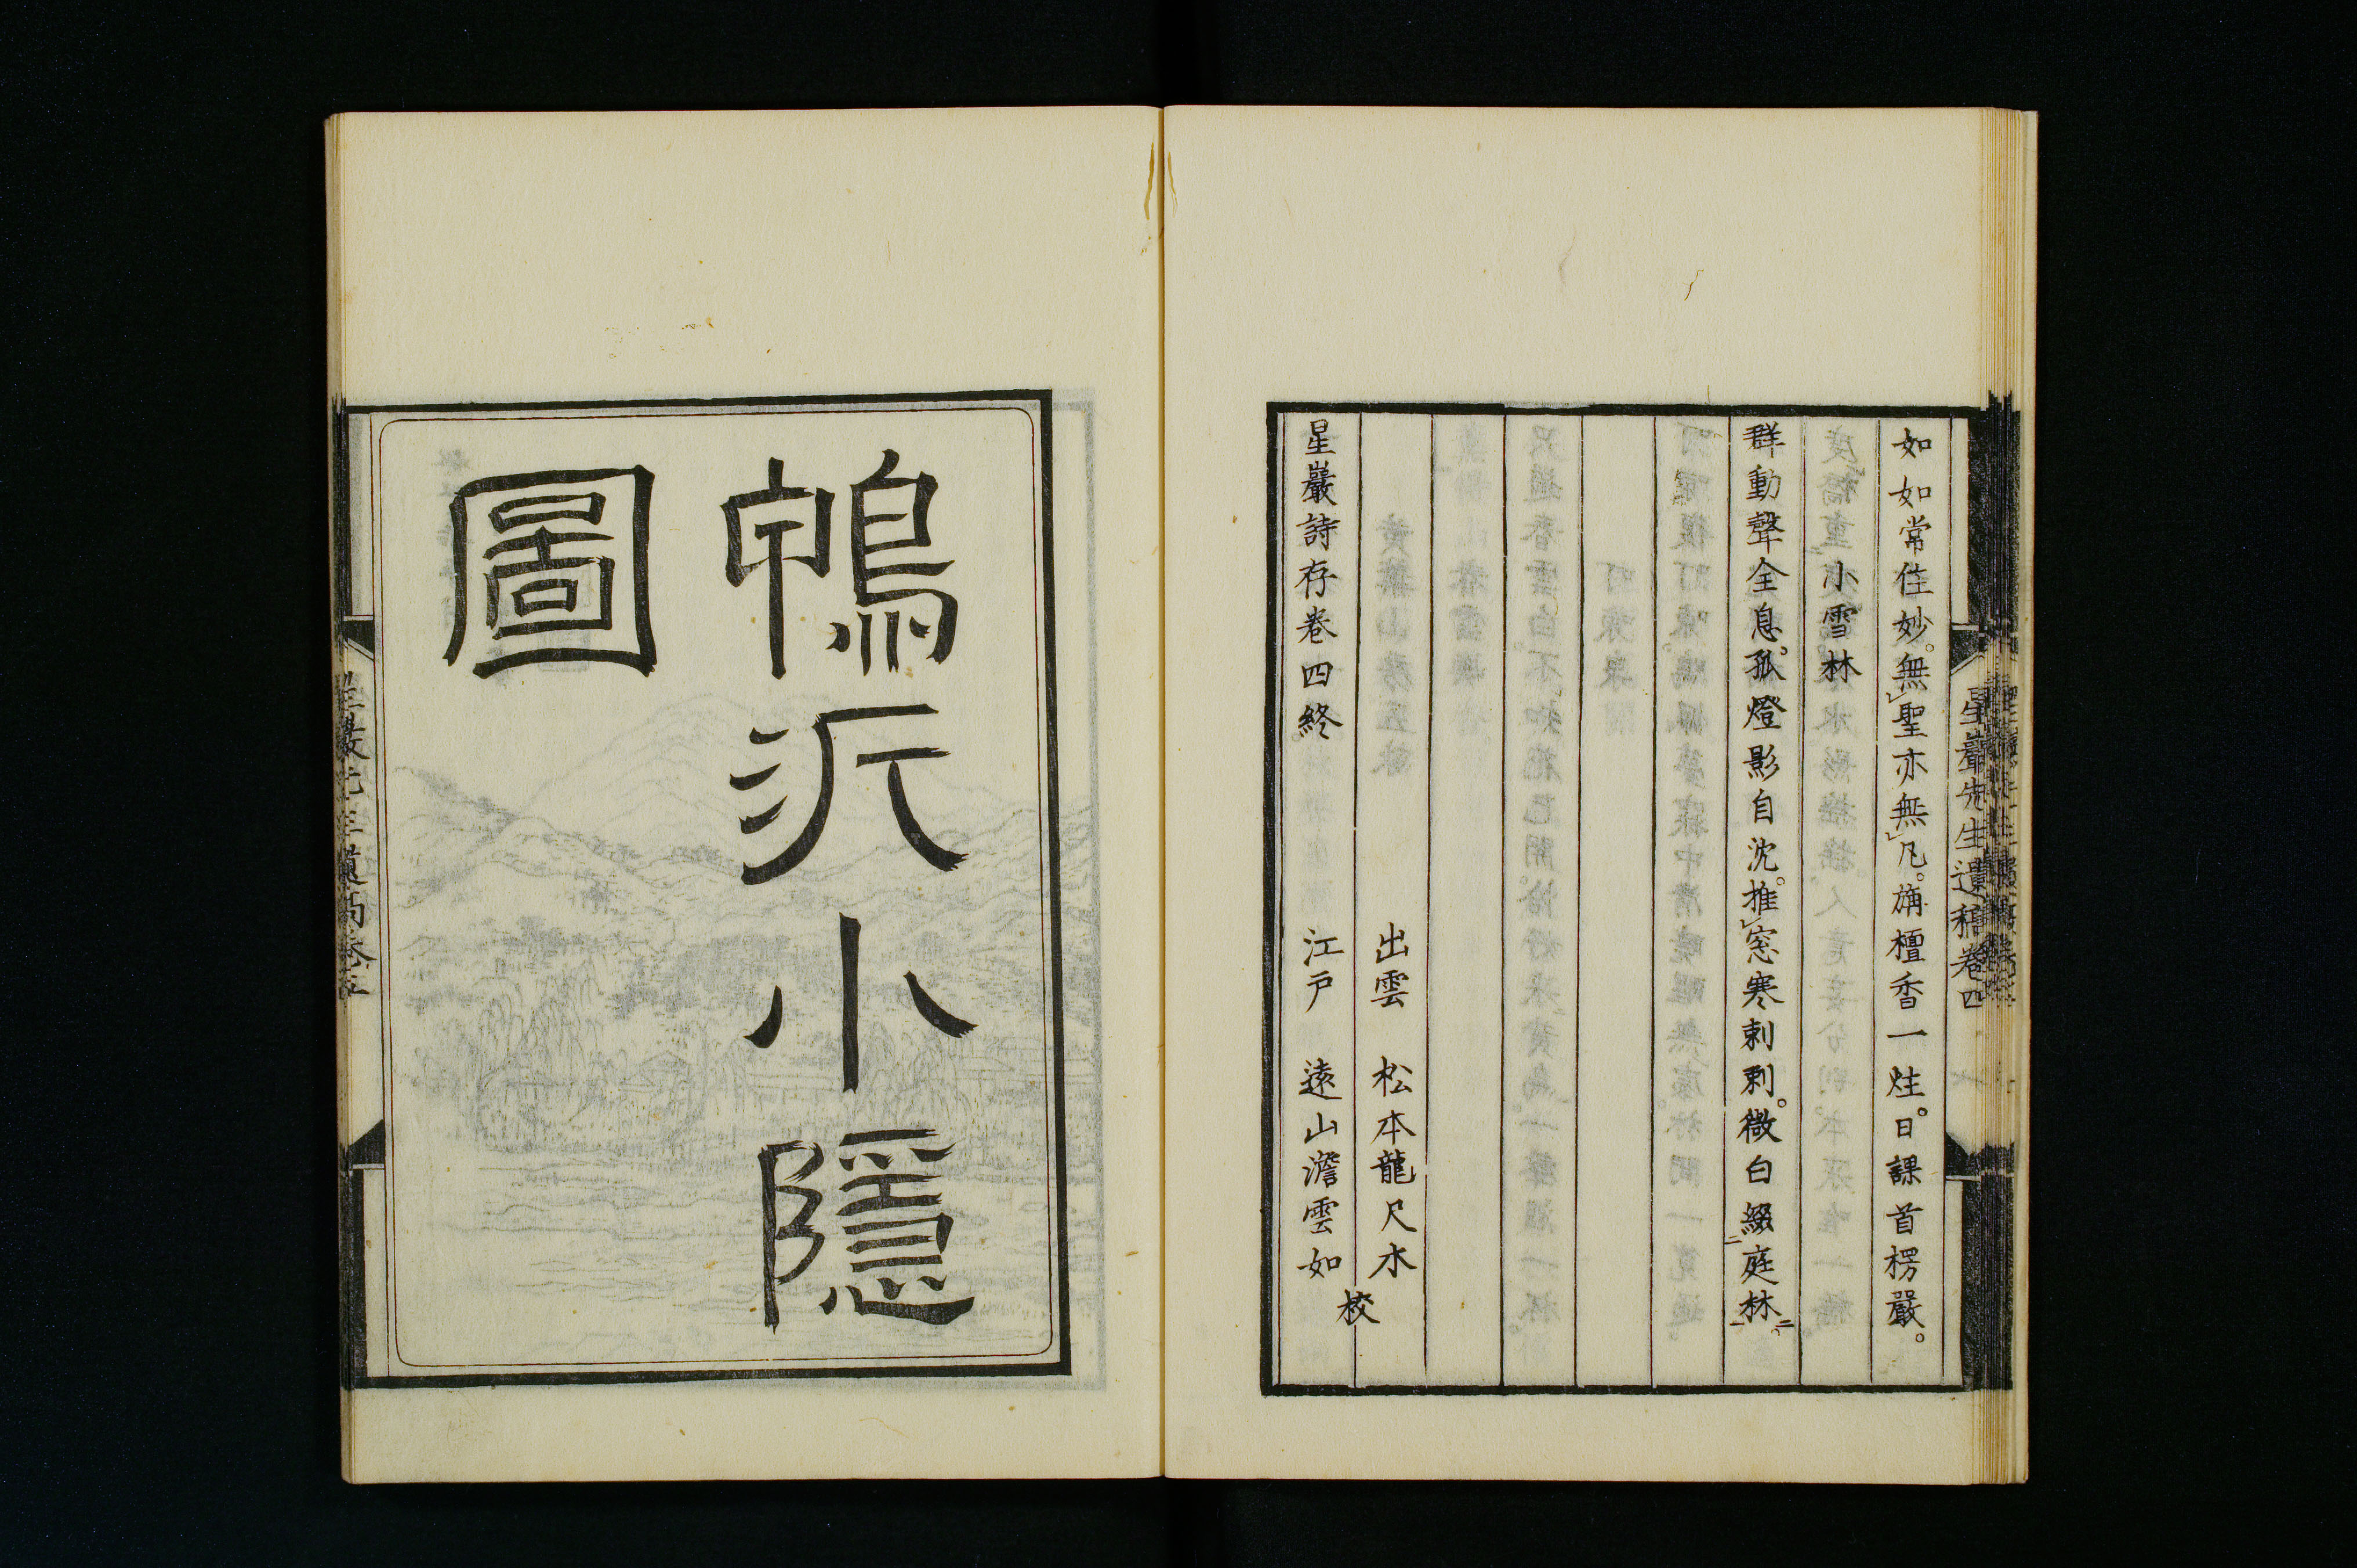 星巖先生遺稿卷四
如如常住妙。無聖亦無凡。旃檀香一炷。日課首楞嚴。
小雪林
群動聲全息。孤燈影自沈。推窓寒剌剌。微白綴庭林
出雲 松本龍尺水
江戸 遠山澹雲如
校
星巖詩存卷四終
鴨沂小隱
圖